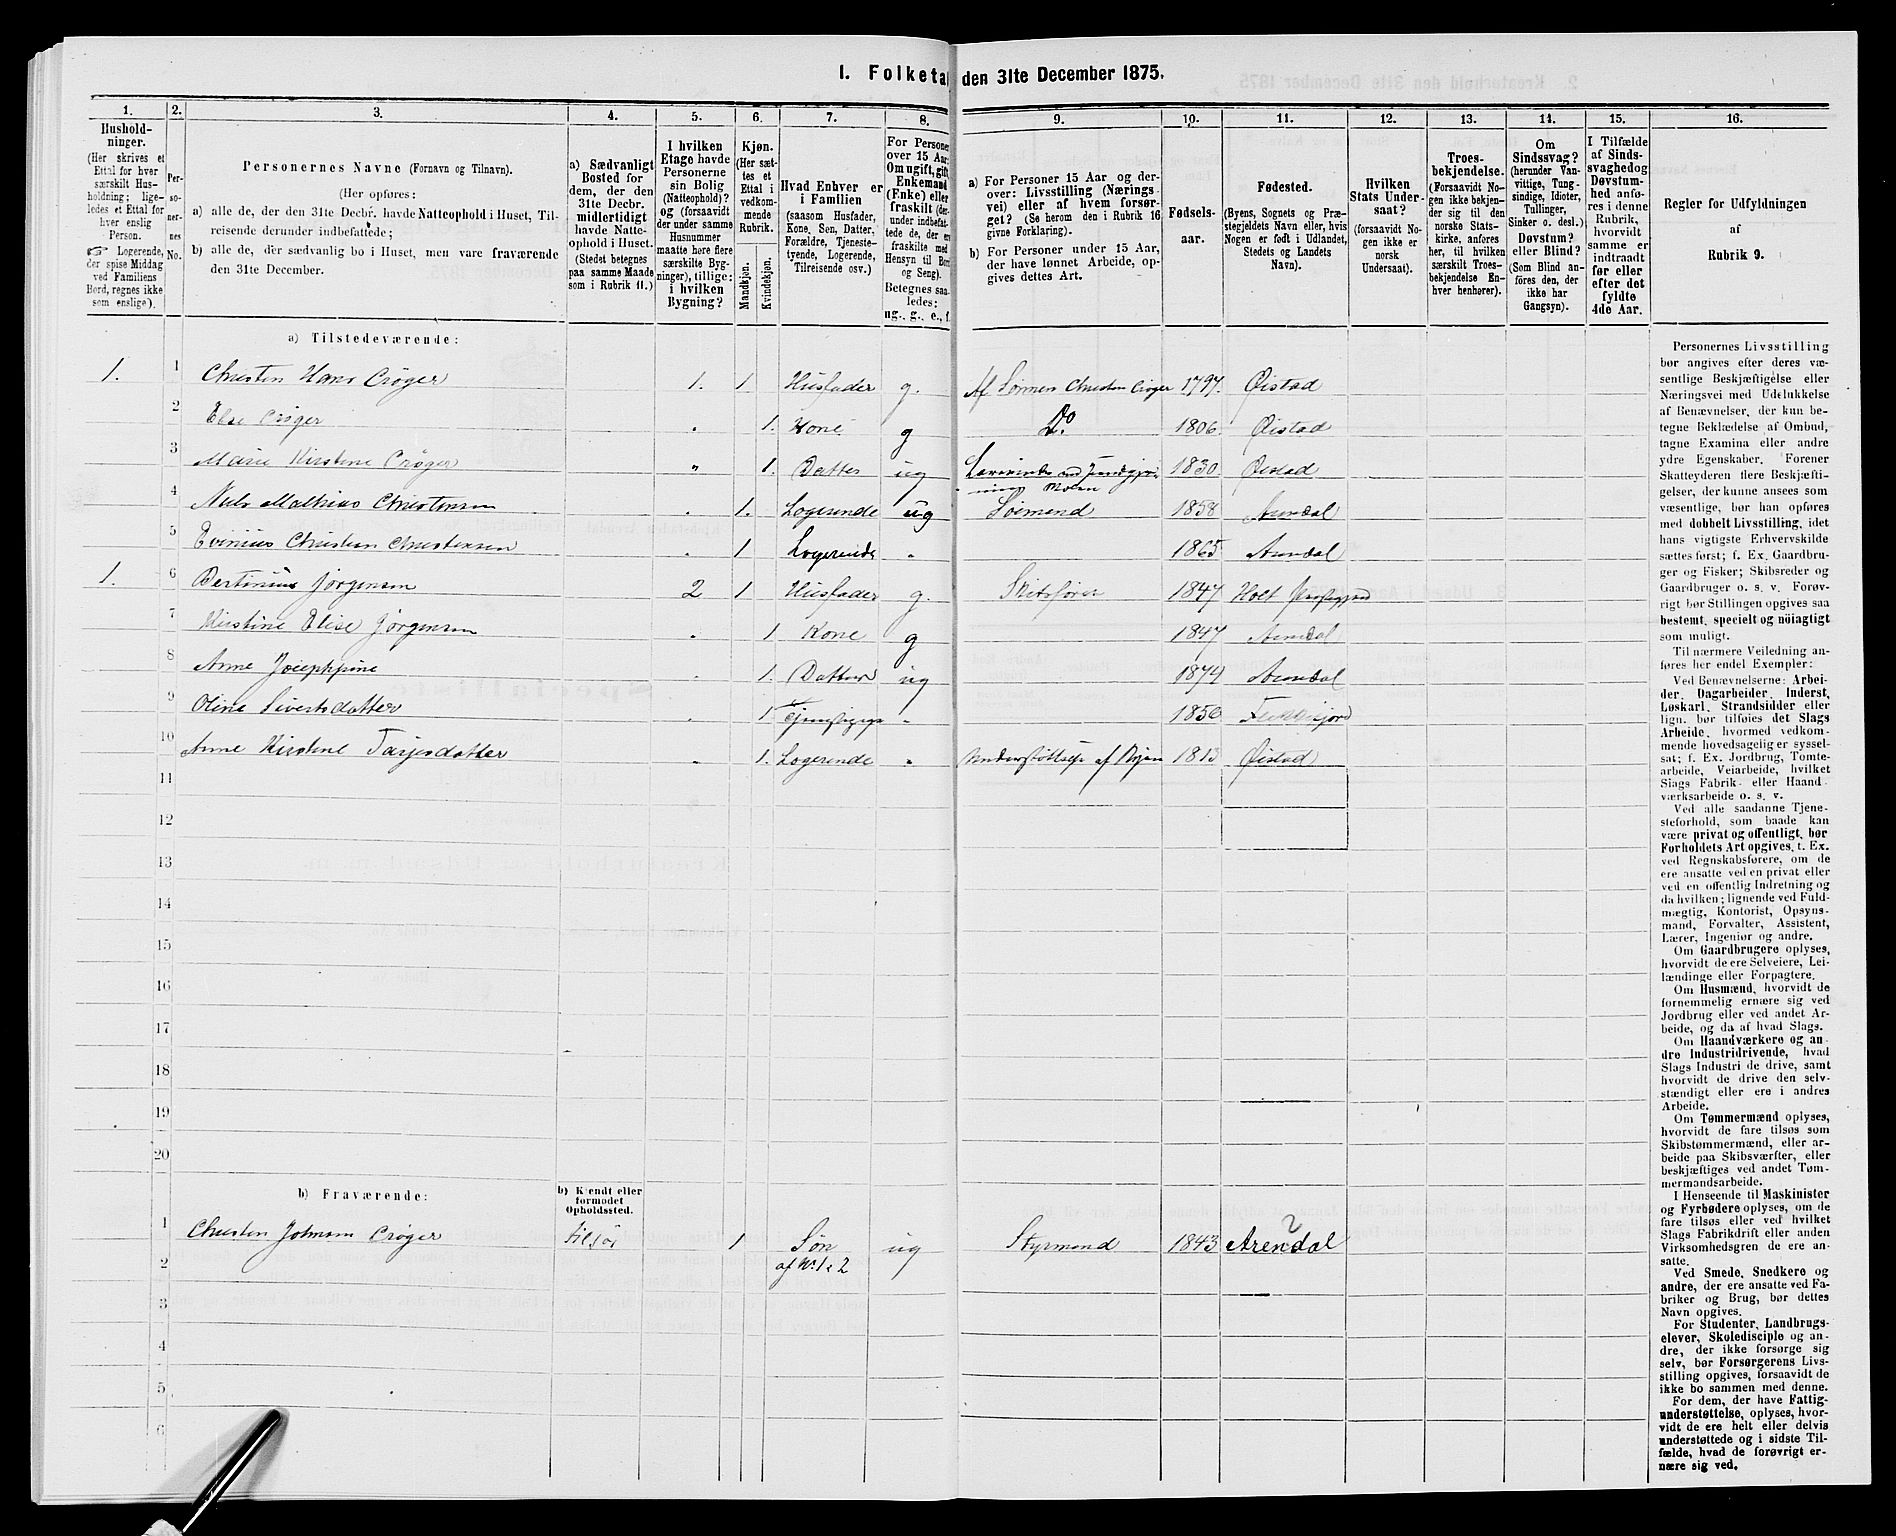 1. Folketal den 31te December 1875.
1. 2. 3. 4. 5. 6. 7. 8. 9. 10. 11. 12. 13. 14. 15. 16.
Hushold-
ninger.
(Her skrives et
Ettal for hver
særskilt Hus-
holdning; lige-
ledes et Ettal for
hver enslig
Person.
☞ Logerende,
der spise Middag
ved Familiens
Bord, regnes ikke
som enslige).
Per-
so-
ner-
nes
No.
Personernes Navne (Fornavn og Tilnavn).
(Her opføres:
a) alle de, der den 31te Decbr. havde Natteophold i Huset, Til-
reisende derunder indbefattede;
b) alle de, der sædvanlig bo i Huset, men vare fraværende
den 31te December.
a) Sædvanligt
Bosted for
dem, der den
31te Decbr.
midlertidigt
havde Natte-
ophold i Huset.
(Stedet betegnes
paa samme Maade
som i Rubrik 11.)
I hvilken
Etage havde
Personerne
sin Bolig
(Natteophold)?
og (forsaavidt
der under samme
Husnummer
maatte høre flere
særskilte Byg-
ninger), tillige:
i hvilken
Bygning?
Kjøn.
(Her sæt-
tes et
Ettal i
vedkom-
mende
Rubrik.
Mandkjøn.
Kvindekjøn.
Hvad Enhver er
i Familien
(saasom Husfader,
Kone, Søn, Datter,
Forældre, Tjeneste-
tyende, Logerende,
Tilreisende osv.)
For Personer
over 15 Aar:
Om ugift, gift,
Enkemand
(Enke) eller
fraskilt (der-
under indbefat-
tede de, der ere
fraskilte med
Hensyn til Bord
og Seng).
Betegnes saa-
ledes:
ug., g., e., f.
a) For Personer 15 Aar og der-
over: Livsstilling (Nærings-
vei) eller af hvem forsør-
get? (Se herom den i Rubrik 16
givne Forklaring).
b) For Personer under 15 Aar,
der have lønnet Arbeide, op-
gives dettes Art.
Fødsels-
aar.
Fødested.
(Byens, Sognets og Præ-
stegjeldets Navn eller, hvis
Nogen er født i Udlandet,
Stedets og Landets
Navn).
Hvilken
Stats Under-
saat?
(forsaavidt No-
gen ikke er
norsk
Undersaat).
Troes-
bekjendelse.
(Forsaavidt No-
gen ikke bekjen-
der sig til den
norske Stats-
kirke, anføres
her, til hvilken
særskilt Troes-
bekjendelse En-
hver henhører).
Om
Sindssvag?
(herunder Van-
vittige, Tung-
sindige, Idioter,
Tullinger,
Sinker o. desl.)
Døvstum?
eller Blind?
(Som Blind an-
føres den, der
ikke har
Gangsyn).
I Tilfælde
af Sinds-
svaghed og
Døvstum-
hed anfø-
res i denne
Rubrik,
hvorvidt
samme er
indtraadt
før eller
efter det
fyldte
4de Aar.
Regler for Udfyldningen
af
Rubrik 9.
a) Tilstedeværende:
1. 1 Christen Hans Crøger 1. 1 Husfader g. Af Sønnen Christen Crøger 1797. Øistad
2 Else Crøger " 1. Kone g Do. 1806. Øistad
3 Marie Kirstine Crøger " 1. Datter ug 1830. Øistad
4 Niels Mathias Christensen " 1. Logerende ug Sømand 1858 Arendal
5 Christian Christensen " 1 Logerende " 1865 Arendal
1. 6 Jørgensen 2 1 Husfader g. Skibsfører 1847 Holt
7 Kirstine Elise Jørgensen " 1 Kone g 1847 Arendal
8 Anne Josephine " 1. Datter ug 1874 Arendal
9 Oline Sivertsdatter " 1 " 1856
10 Anne Kirstine Tarjesdatter " 1. Logerende " Understøttelse af Byen 1813 Øistad
11
12
13
14
15
16
17
18
19
20
b) Fraværende:
b) Kjendt eller
formodet
Opholdssted.
1 Christen Johnsen Crøger tilsøs 1 Søn ug Styrmand 1843 Arendal ?
2 af No. 1 & 2
3
4
5
6
Personernes Livsstilling
bør angives efter deres væ-
sentlige Beskjæftigelse eller
Næringsvei med Udelukkelse
af Benævnelser, der kun be-
tegne Beklædelse af Ombud,
tagne Examina eller andre
ydre Egenskaber. Forener
Skatteyderen flere Beskjæfti-
gelser, der kunne ansees som
væsentlige, bør han opføres
med dobbelt Livsstilling, idet
hans vigtigste Erhvervskilde
sættes først; f. Ex. Gaardbru-
ger og Fisker; Skibsreder og
Gaardbruger o. s. v. Forøv-
rigt bør Stillingen opgives saa
bestemt, specielt og nöiagtigt
som muligt.
Til nærmere Veiledning an-
føres her endel Exempler:
Ved Benævnelserne: Arbei-
der, Dagarbeider, Inderst,
Løskarl, Strandsidder eller
lign. bør tilføies det Slags
Arbeide, hvormed vedkom-
mende hovedsagelig er syssel-
sat; f. Ex. Jordbrug, Tomte-
arbeide, Veiarbeide, hvilket
Slags Fabrik- eller Haand-
værksarbeide o. s. v.
Ved alle saadanne Tjene-
steforhold, som baade kan
være privat og offentligt, bør
Forholdets Art opgives, t. Ex.
ved Regnskabsførere, om de
ere ansatte ved en privat eller
ved en offentlig Indretning og
da hvilken; lignende ved Fuld-
mægtig, Kontorist, Opsyns-
mand, Forvalter, Assistent,
Lærer, Ingeniør og andre.
Om Gaardbrugere oplyses,
hvorvidt de ere Selveiere, Lei-
lændinge eller Forpagtere.
Om Husmænd, hvorvidt de
fornemmelig ernære sig ved
Jordbrug eller ved andet Ar-
beide, og da af hvad Slags.
Om Haandværkere og an-
dre Industridrivende, hvad
Slags Industri de drive, samt
hvorvidt de drive den selv-
stændigt eller ere i andres
Arbeide.
Om Tømmermænd oplyses,
hvorvidt de fare tilsøs som
Skibstømmermænd, eller ar-
beide paa Skibsværfter, eller
beskjæftiges ved andet Tøm-
mermandsarbeide.
I Henseende til Maskinister
og Fyrbødere oplyses, om de
fare tilsøs eller ved hvilket
Slags Fabrikdrift eller anden
Virksomhedsgren de ere an-
satte.
Ved Smede, Snedkere og
andre, der ere ansatte ved Fa-
briker og Brug, bør dettes
Navn opgives.
For Studenter, Landbrugs-
elever, Skoledisciple og an-
dre, der ikke forsørge sig
selv, bør Forsørgerens Livs-
stilling opgives, forsaavidt de
ikke bo sammen med denne.
For dem, der have Fattig-
understøttelse, oplyses, hvor-
vidt de ere helt eller delvis
understøttede og i sidste Til-
fælde, hvad de forøvrigt er-
nære sig ved.